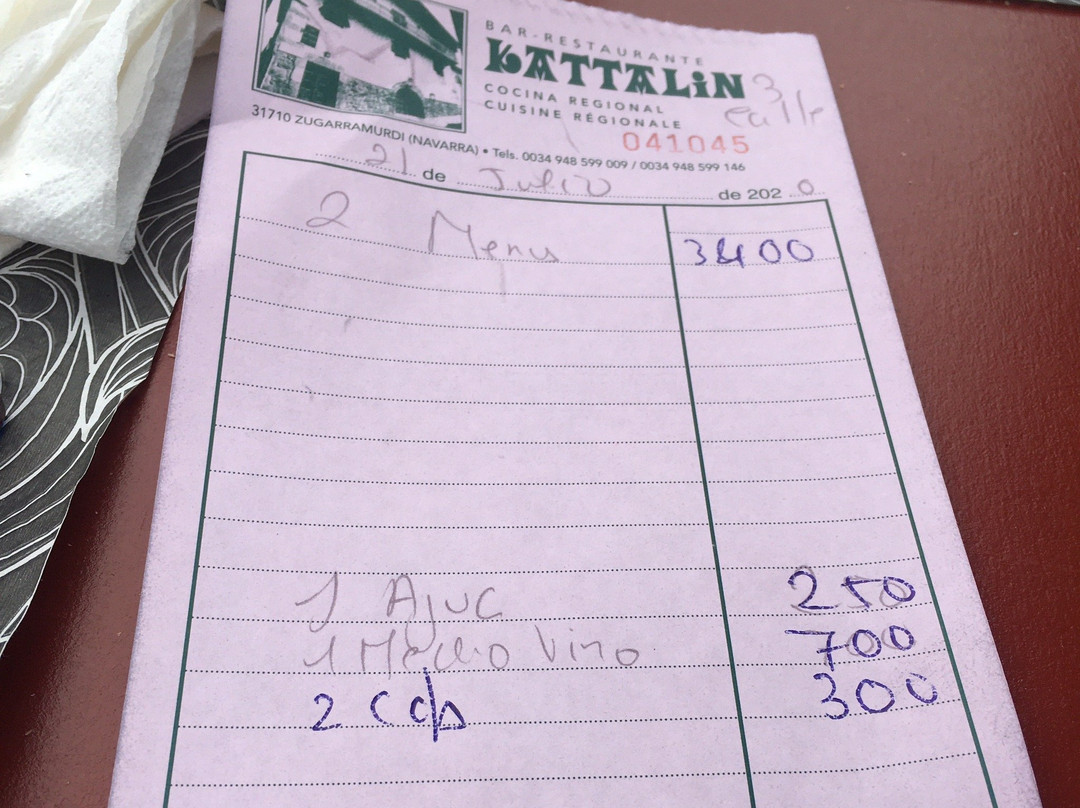 BAR-RESTAURANTE
KATTALIN
3
COCINA REGIONAL
calle
CUISINE RÉGIONALE
041045
31710 ZUGARRAMURDI (NAVARRA) • Tels. 0034 948 599 009 / 0034 948 599 146
21 de Julio de 2020
2 Menus 3400
1 Ajuc 250
1 Medio Vino 700
2 300